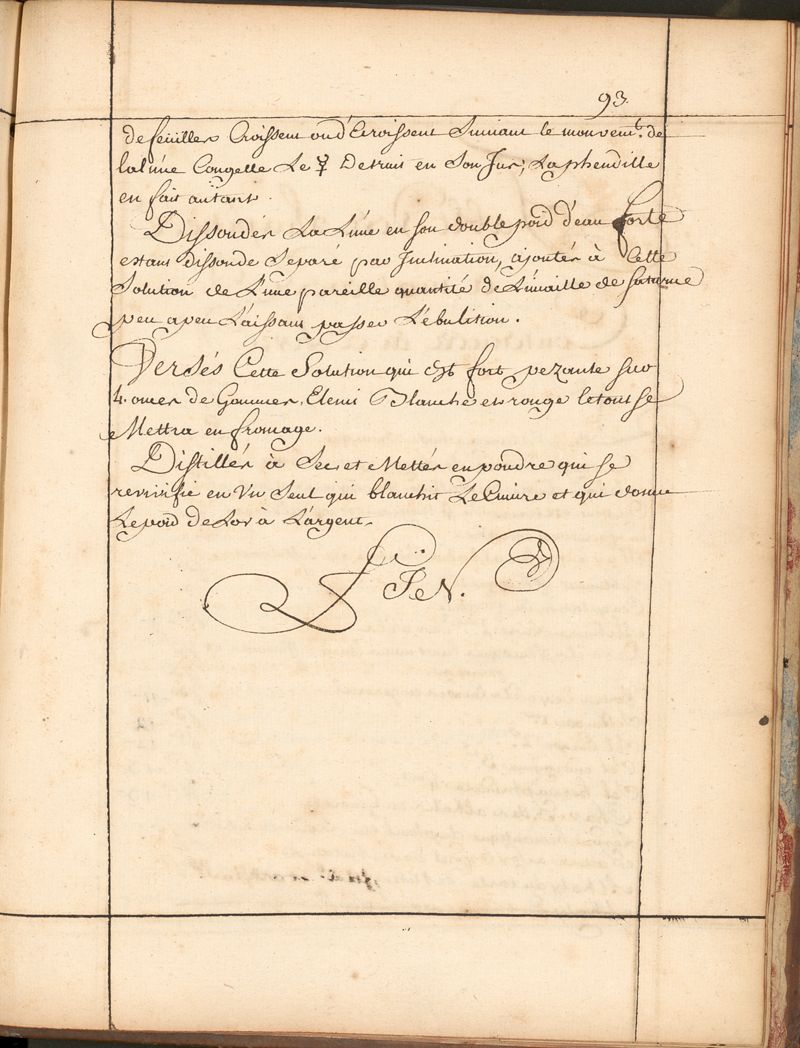 93.
de feuilles Croissent ou d'Ecroissent Suivant le mouvem.t de
la lune Congelle Le ☿ Detruit en Son Jus, Laphendille
en fait autant.
Dissoudés La Lune en son double poid d'eau forte
estant dissoude Separé par Inclination, ajoutés à Cette
Solution de Lune pareille quantité de Limaille de saturne
peu a peu Laissant passer L'ébulition.
Versés Cette Solution qui est fort pezante sur
4. onces de Gommes, Elemi Blanche et rouge le tout se
Mettra en fromage.
Distillés à Sec et Mettés en poudre qui se
revivifie en Vn Seul qui blanchit Le Cuivre et qui donne
Le poid de Lor à L'argent.
FiN.